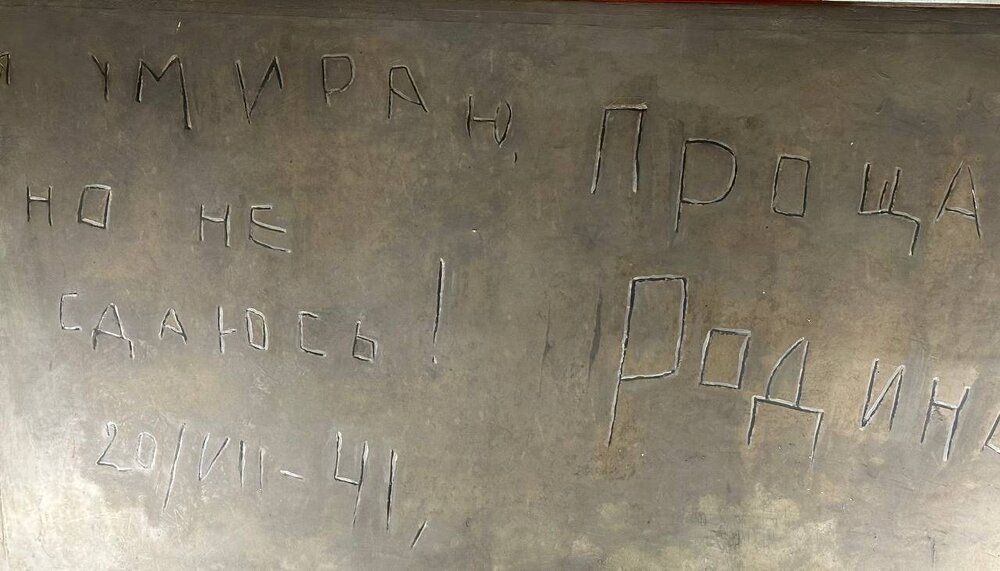 я умираю,
но не
сдаюсь!
20/VII-41,
Проща
Родина